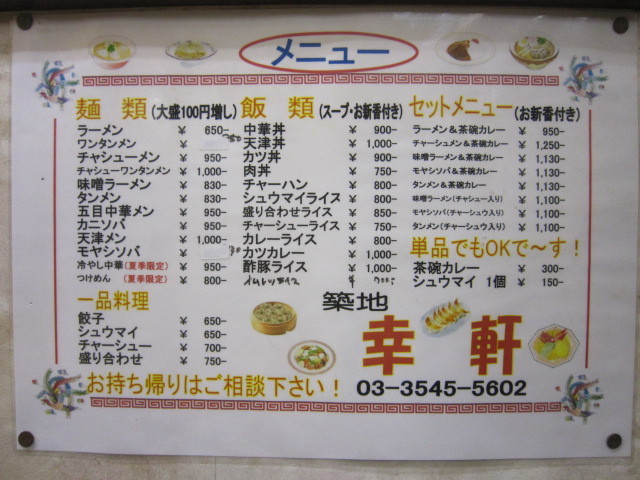 メニュー
麺 類 (大盛100円増し)
ラーメン ¥ 650-
ワンタンメン ¥
チャシューメン ¥ 950-
チャシューワンタンメン ¥ 1,000-
味噌ラーメン ¥ 830-
タンメン ¥ 830-
五目中華メン ¥ 950-
カニソバ ¥ 950-
天津メン ¥ 1,000-
モヤシソバ ¥
冷やし中華(夏季限定) ¥ 950-
つけめん (夏季限定) ¥ 800-
一品料理
餃子 ¥ 650-
シュウマイ ¥ 650-
チャーシュー ¥ 700-
盛り合わせ ¥ 750-
飯 類 (スープ・お新香付き)
中華丼 ¥ 900-
天津丼 ¥ 1,000-
カツ丼 ¥ 1,000-
肉丼 ¥ 750-
チャーハン ¥ 800-
シュウマイライス ¥ 750-
盛り合わせライス ¥ 850-
チャーシューライス ¥ 750-
カレーライス ¥ 800-
カツカレー ¥ 1,000-
酢豚ライス ¥ 1,000-
セットメニュー(お新香付き)
ラーメン&茶碗カレー ¥ 950-
チャーシューメン&茶碗カレー ¥ 1,250-
味噌ラーメン&茶碗カレー ¥ 1,130-
モヤシソバ&茶碗カレー ¥ 1,130-
タンメン&茶碗カレー ¥ 1,130-
味噌ラーメン(チャシュー入り) ¥ 1,100-
モヤシソバ(チャーシュウ入り) ¥ 1,100-
タンメン(チャーシュウ入り) ¥ 1,100-
単品でもOKで～す!
茶碗カレー ¥ 300-
シュウマイ 1個 ¥ 150-
築地
幸 軒
お持ち帰りはご相談下さい! 03-3545-5602